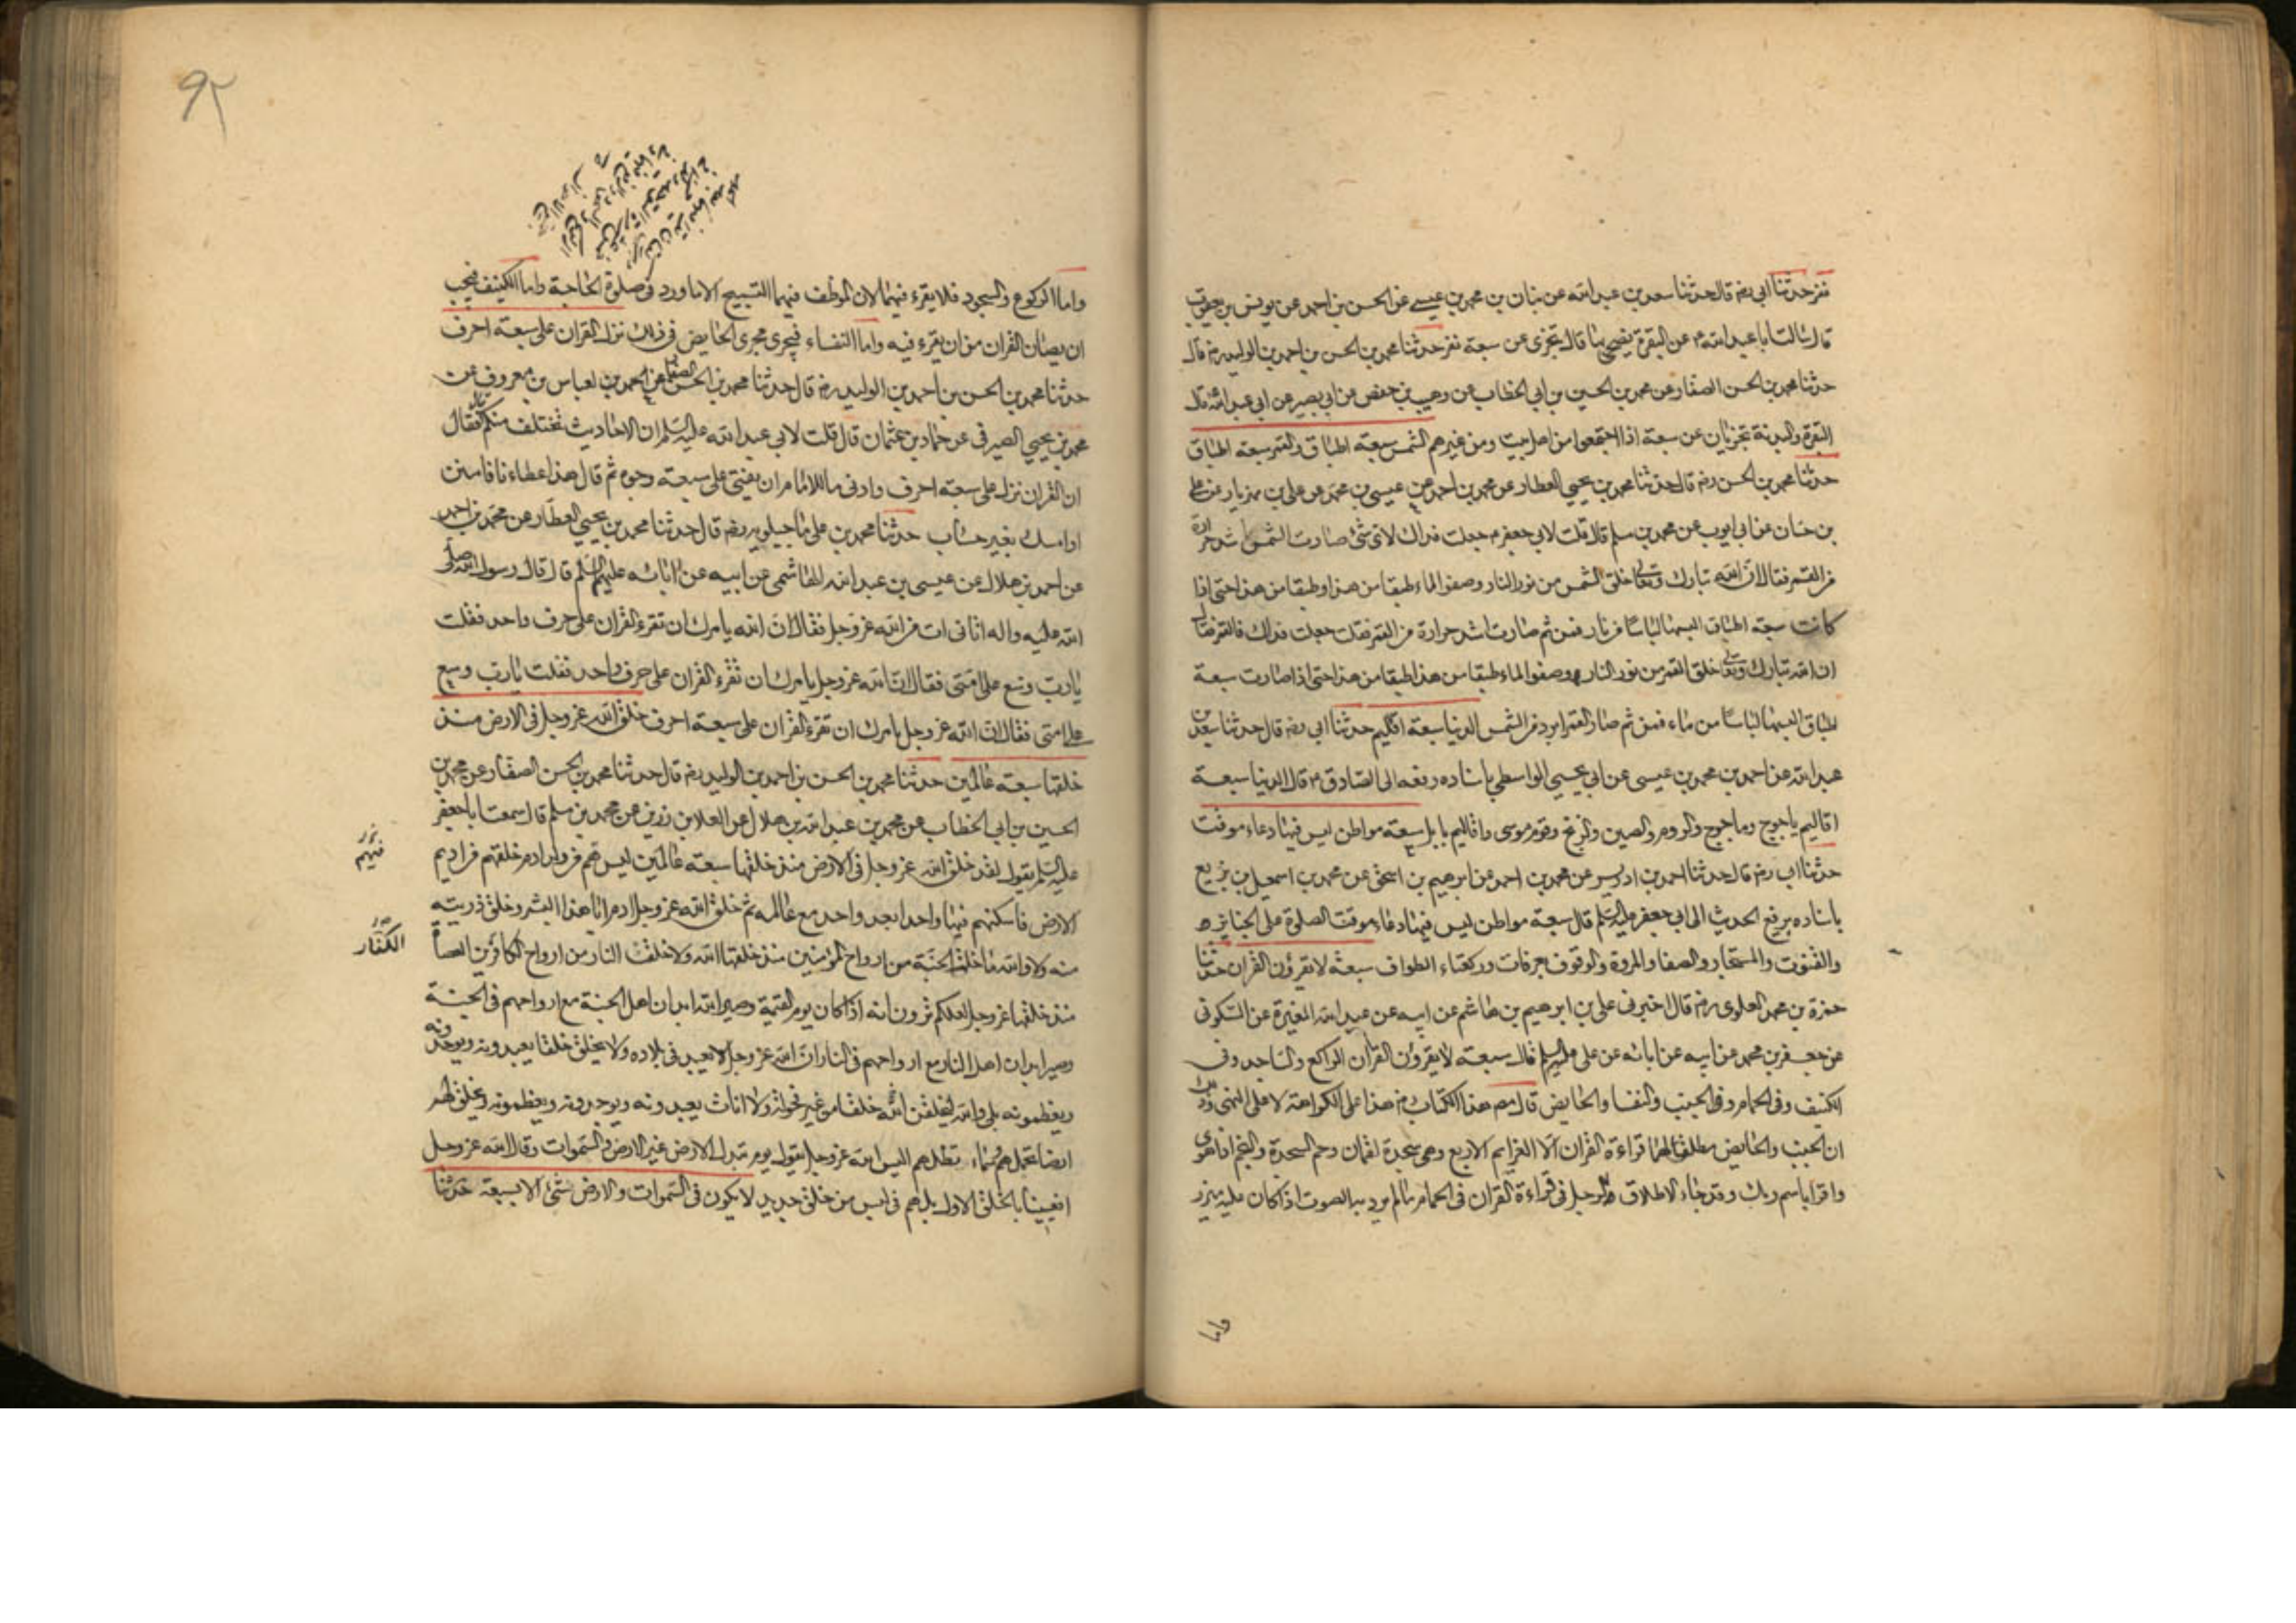 نفر حدثنا ابي رضه قال حدثنا سعد بن عبد الله عن بنان بن محمد بن عيسى عن الحسن بن احمد عن يونس بن يعقوب
قال سالت ابا عبد الله ع عن البقرة يضحى بها قال تجزى عن سبعة نفر حدثنا محمد بن الحسن بن احمد بن الوليد رضه قال
حدثنا محمد بن الحسن الصفار عن محمد بن الحسين بن ابي الخطاب عن وهيب بن حفص عن ابي بصير عن ابي عبد الله قال
البقرة والبدنة تجزيان عن سبعة اذا اجتمعوا من اهل بيت ومن غيرهم الشمس سبعة اطباق والقمر سبعة اطباق
حدثنا محمد بن الحسن رضه قال حدثنا محمد بن يحيى العطار عن محمد بن احمد عن عيسى بن محمد عن علي بن مهزيار عن علي
بن حسان عن ابي ايوب عن محمد بن مسلم قال قلت لابي جعفر ع جعلت فداك لاي شئ صارت الشمس اشد حرارة
من القمر فقال ان الله تبارك وتعالى خلق الشمس من نور النار وصفو الماء طبقا من هذا وطبقا من هذا حتى اذا
كانت سبعة اطباق البسها لباسا من نار فمن ثم صارت اشد حرارة من القمر قلت جعلت فداك فالقمر قال
ان الله تبارك وتعالى خلق القمر من نور النار وصفو الماء طبقا من هذا طبقا من هذا حتى اذا صارت سبعة
اطباق البسها لباسا من ماء فمن ثم صار القمر ابرد من الشمس الدنيا سبعة اقاليم حدثنا ابي رضه قال حدثنا سعد بن
عبد الله عن احمد بن محمد بن عيسى عن ابي يحيى الواسطي باسناده رفعه الى الصادق ع قال الدنيا سبعة
اقاليم ياجوج وماجوج والروم والصين والزنج وقوم موسى واقاليم بابل سبعة مواطن ليس فيها دعاء موقت
حدثنا ابي رضه قال حدثنا احمد بن ادريس عن محمد بن احمد عن ابرهيم بن اسحق عن محمد بن اسمعيل بن بزيع
باسناده يرفع الحديث الى ابي جعفر عليه السلم قال سبعة مواطن ليس فيها دعاء موقت الصلوة على الجنايزه
والقنوت والمستجار والصفا والمروة والوقوف بعرفات وركعتاء الطواف سبعة لا يقرؤن القرآن حدثنا
حمزة بن محمد العلوى رضه قال اخبرنى على بن ابرهيم بن هاشم عن ابيه عن عبد الله المغيرة عن السكونى
عن جعفر بن محمد عن ابيه عن ابائه عن على عليهم السلم قال سبعة لا يقرؤن القرآن الراكع والساجد وفى
الكنيف وفى الحمام وفى الجنب والنفسا والحايض قال مصه هذا الكتاب رضه هذا على الكراهة لا على النهى وذلك
ان الجنب والحايض مطلق لهما قراءة القرآن الا العزايم الاربع وهى سجدة لقمان وحم السجدة والنجم اذا هوى
واقرا باسم ربك وقد جاء الاطلاق للرجل فى قراءة القرآن فى الحمام ما لم يرد به الصوت اذا كان عليه ميزر
واما
٩٢
واما الركوع والسجود فلا يقرء فيهما لان الموظف فيهما التسبيح الا ما ورد فى صلوة الحاجة واما الكنيف فيجب
ان يصان القرآن من ان يقرء فيه واما النفساء فيجرى مجرى الحايض فى ذلك نزل القرآن على سبعة احرف
حدثنا محمد بن الحسن بن احمد بن الوليد رضه قال حدثنا محمد بن الحسن الصفار عن احمد بن العباس بن معروف عن
محمد بن يحيى الصيرفى عن حماد بن عثمان قال قلت لابى عبد الله عليه السلم ان الاحاديث تختلف منكم قال فقال
ان القرآن نزل على سبعة احرف وادنى ما للامام ان يفتى على سبعة وجوه ثم قال هذا عطاءنا فامنن
او امسك بغير حساب حدثنا محمد بن على ماجيلويه رضه قال حدثنا محمد بن يحيى العطار عن محمد بن احمد
عن احمد بن هلال عن عيسى بن عبد الله الهاشمى عن ابيه عن ابائه عليهم السلم قال قال رسول الله صلى
الله عليه واله اتانى ات من الله عز وجل فقال ان الله يامرك ان تقرء القرآن على حرف واحد فقلت
يا رب وسع على امتى فقال ان الله عز وجل يامرك ان تقرء القرآن على حرف واحد فقلت يا رب وسع
على امتى فقال ان الله عز وجل يامرك ان تقرء القرآن على سبعة احرف خلق الله عز وجل فى الارض منذ
خلقها سبعة عالمين حدثنا محمد بن الحسن بن احمد بن الوليد رضه قال حدثنا محمد بن الحسن الصفار عن محمد بن
الحسين بن ابى الخطاب عن محمد بن عبد الله بن هلال عن العلا بن رزين عن محمد بن مسلم قال سمعت ابا جعفر
عليه السلم يقول لقد خلق الله عز وجل فى الارض منذ خلقها سبعة عالمين ليس هم من ولد ادم خلقهم من اديم
فيهم
الارض فاسكنهم فيها واحدا بعد واحد مع عالمه ثم خلق الله عز وجل ادم ابا هذا البشر وخلق ذريته
منه ولا والله ما خلت الجنة من ارواح المؤمنين منذ خلقها الله ولا خلقت النار من ارواح الكافرين العصاة
الكفار
منذ خلقها عز وجل لعلكم ترون انه اذا كان يوم القيمة وصير الله ابدان اهل الجنة مع ارواحهم فى الجنة
وصير ابدان اهل النار مع ارواحهم فى النار ان الله عز وجل لا يعبد فى بلاده ولا يخلق خلقا يعبدونه ويوحدونه
ويعظمونه بلى والله ليخلقن الله خلقا من غير فحولة ولا اناث يعبدونه ويوحدونه ويعظمونه ويخلق لهم
ارضا تحملهم وسماء تظلهم اليس الله عز وجل يقول يوم تبدل الارض غير الارض والسموات وقال الله عز وجل
افعيينا بالخلق الاول بل هم فى لبس من خلق جديد لا يكون فى السموات والارض شئ الا بسبعة حدثنا